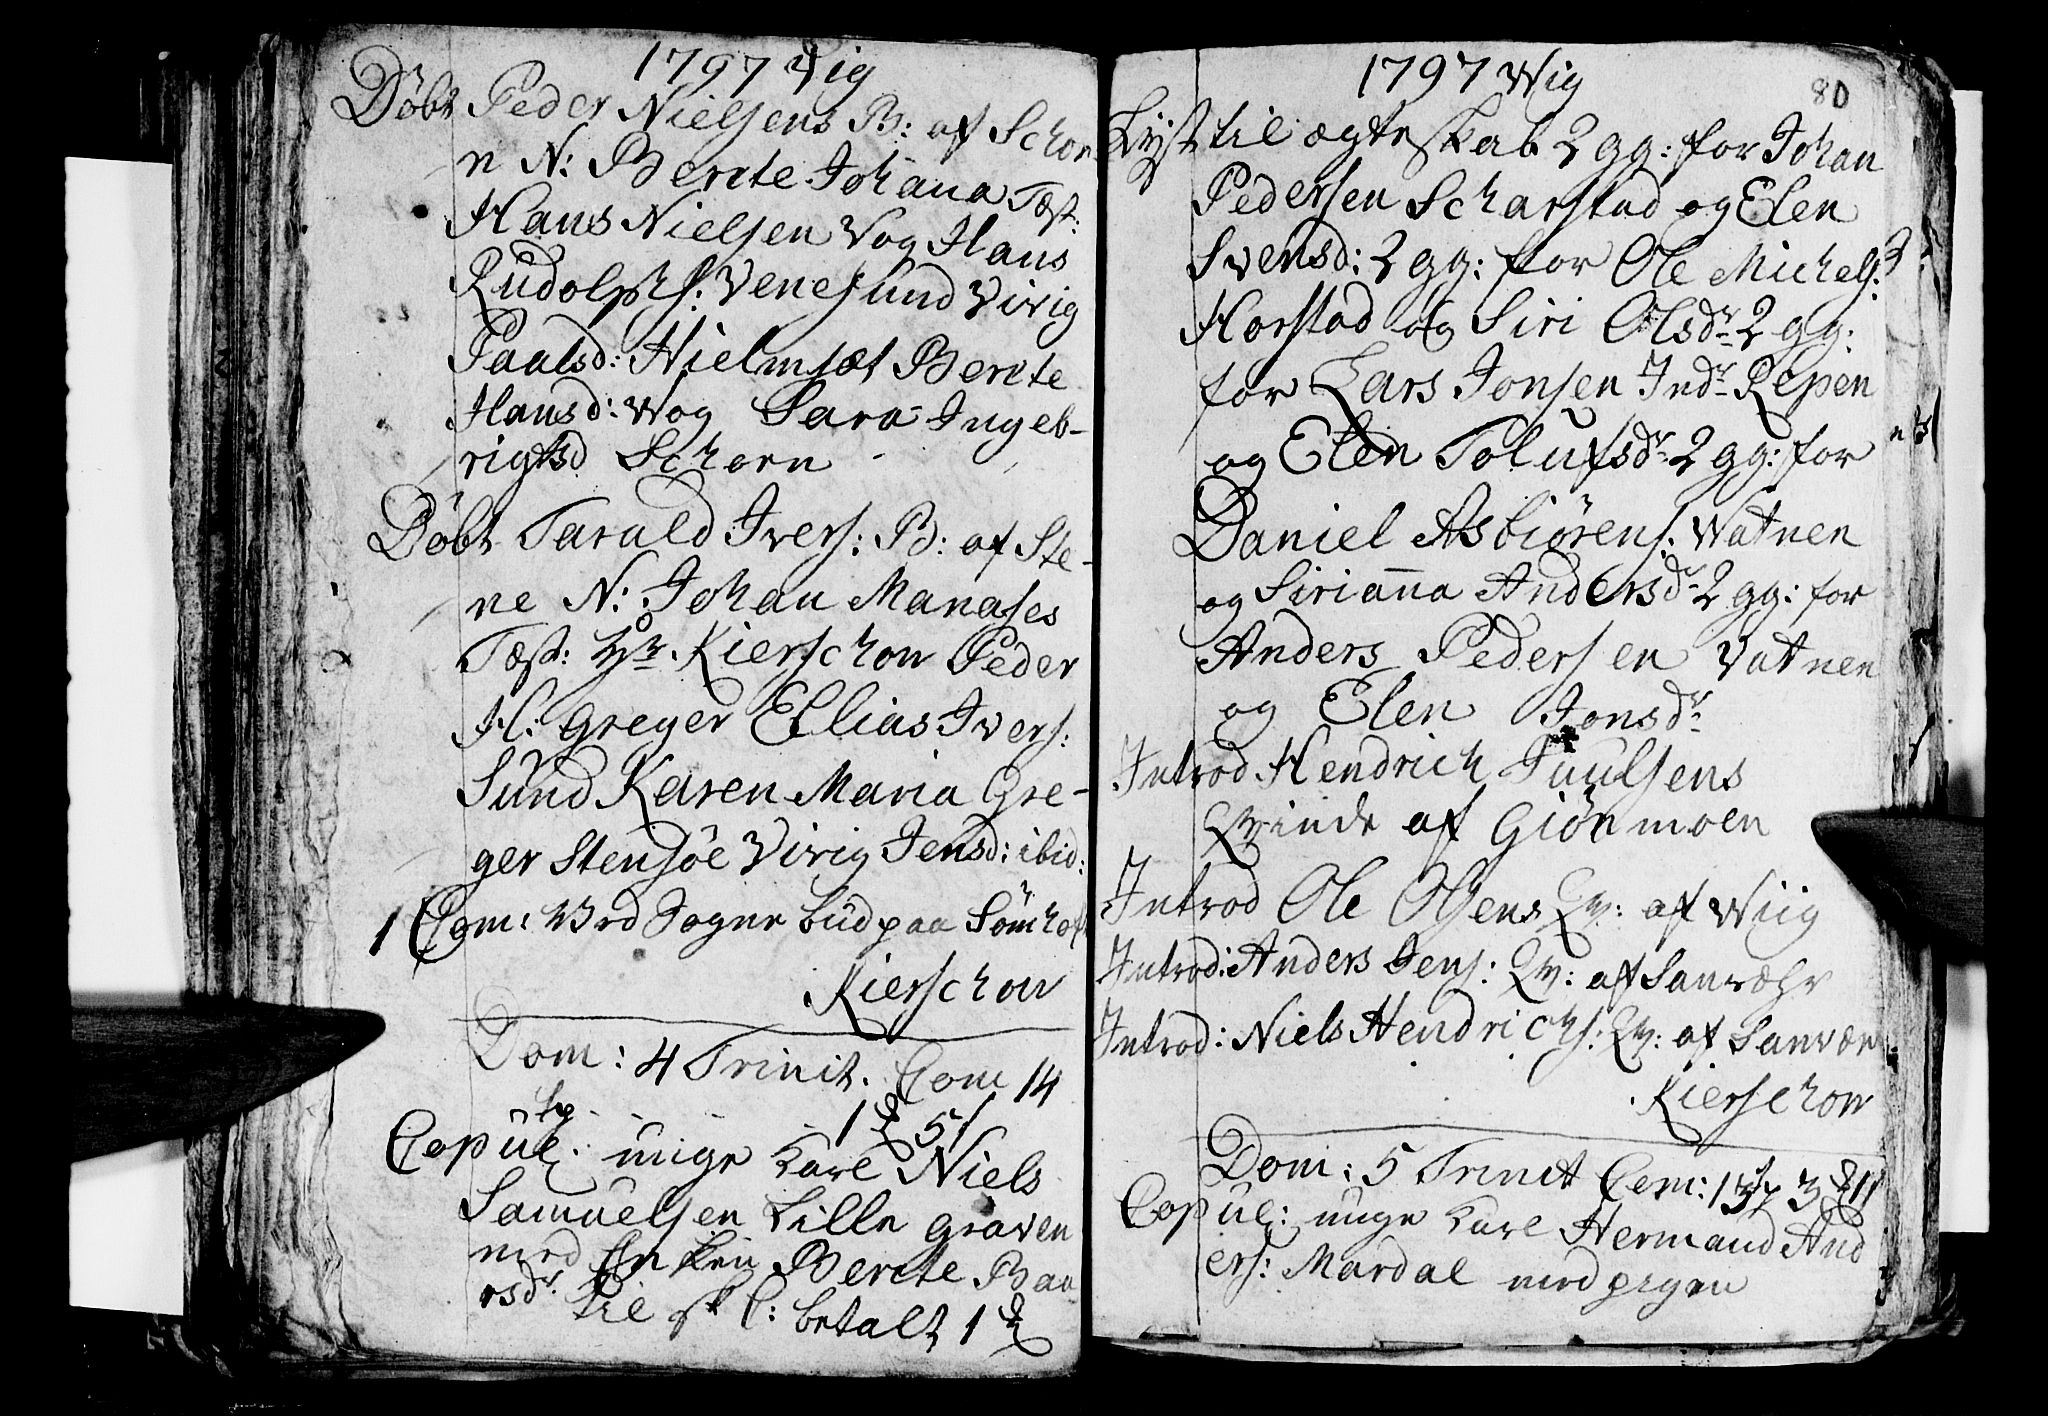 1797 Vig
Döbt Peder Nielsens B: af Schor-
n N: Berete Johana Tæst:
Hans Nielsen Vog Hans
Rudolphs: Venesund Virig
Paalsd: Hielmsæt Berete
Hansd: Wog Sara Ingeb-
rigtsd Schorn
Döbt Tarald Ivers: B: af Ste-
ne N: Johan Manases
Tæst: Hr Kierschow Peder
H: Greger Ellias Ivers:
Sund Karen Maria Gre-
ger Stensöe Virig Jensd: ibid:
1 Com: ved Sognebud paa
Kierschow
Dom: 4 Trinit. Com 14
1 51
Copul: unge Karl Niels
Samuelsen Lille graven
med Enken Berete Baa-
rsdr til betalt 1
1797 Wig
80
Lyst til ægteskab 2 gg: for Johan
Pedersen Scharstad og Elen
Svensd: 2 gg: for Ole Michels:
Horstad og Siri Olsdr 2 gg:
for Lars Jonsen Indr Repen
og Elen Tolufsdr 2 gg: for
Daniel Asbiörens: Watnen
og Sirianna Andersdr 2 gg: for
Anders Pedersen Vatnen
og Elen Jonsdr
Introd Hendrich Juulsens
Qvinde af Giönmoen
Introd Ole Olsens Qv: af Wiig
Introd: Anders Jens: Qv: af Sanvæhr
Introd: Niels Hendrichs: Qv: af Sanvær
Kierschow
Dom: 5 Trinit Com: 137 3 11
Copul: unge Karl Hermand And
ers: Mardal med pigen